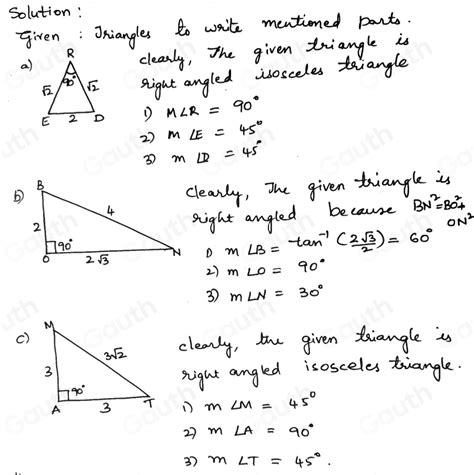 Solution :
Given : Triangles to write mentioned parts.
a) R clearly, The given triangle is
90° right angled isosceles triangle
√2 √2
E 2 D
1) M∠R = 90°
2) m ∠E = 45°
3) m ∠D = 45°
b) B clearly, The given triangle is
4 right angled because BN²=BO²+
ON²
2
90°
O 2√3 N
1) m ∠B = tan⁻¹ (2√3/2) = 60°
2) m ∠O = 90°
3) m ∠N = 30°
c) M clearly, the given triangle is
3√2 right angled isosceles triangle.
3
90°
A 3 T
1) m ∠M = 45°
2) m ∠A = 90°
3) m ∠T = 45°.
Gauth